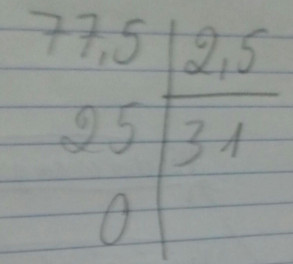 77,5 2,5
25 31
0